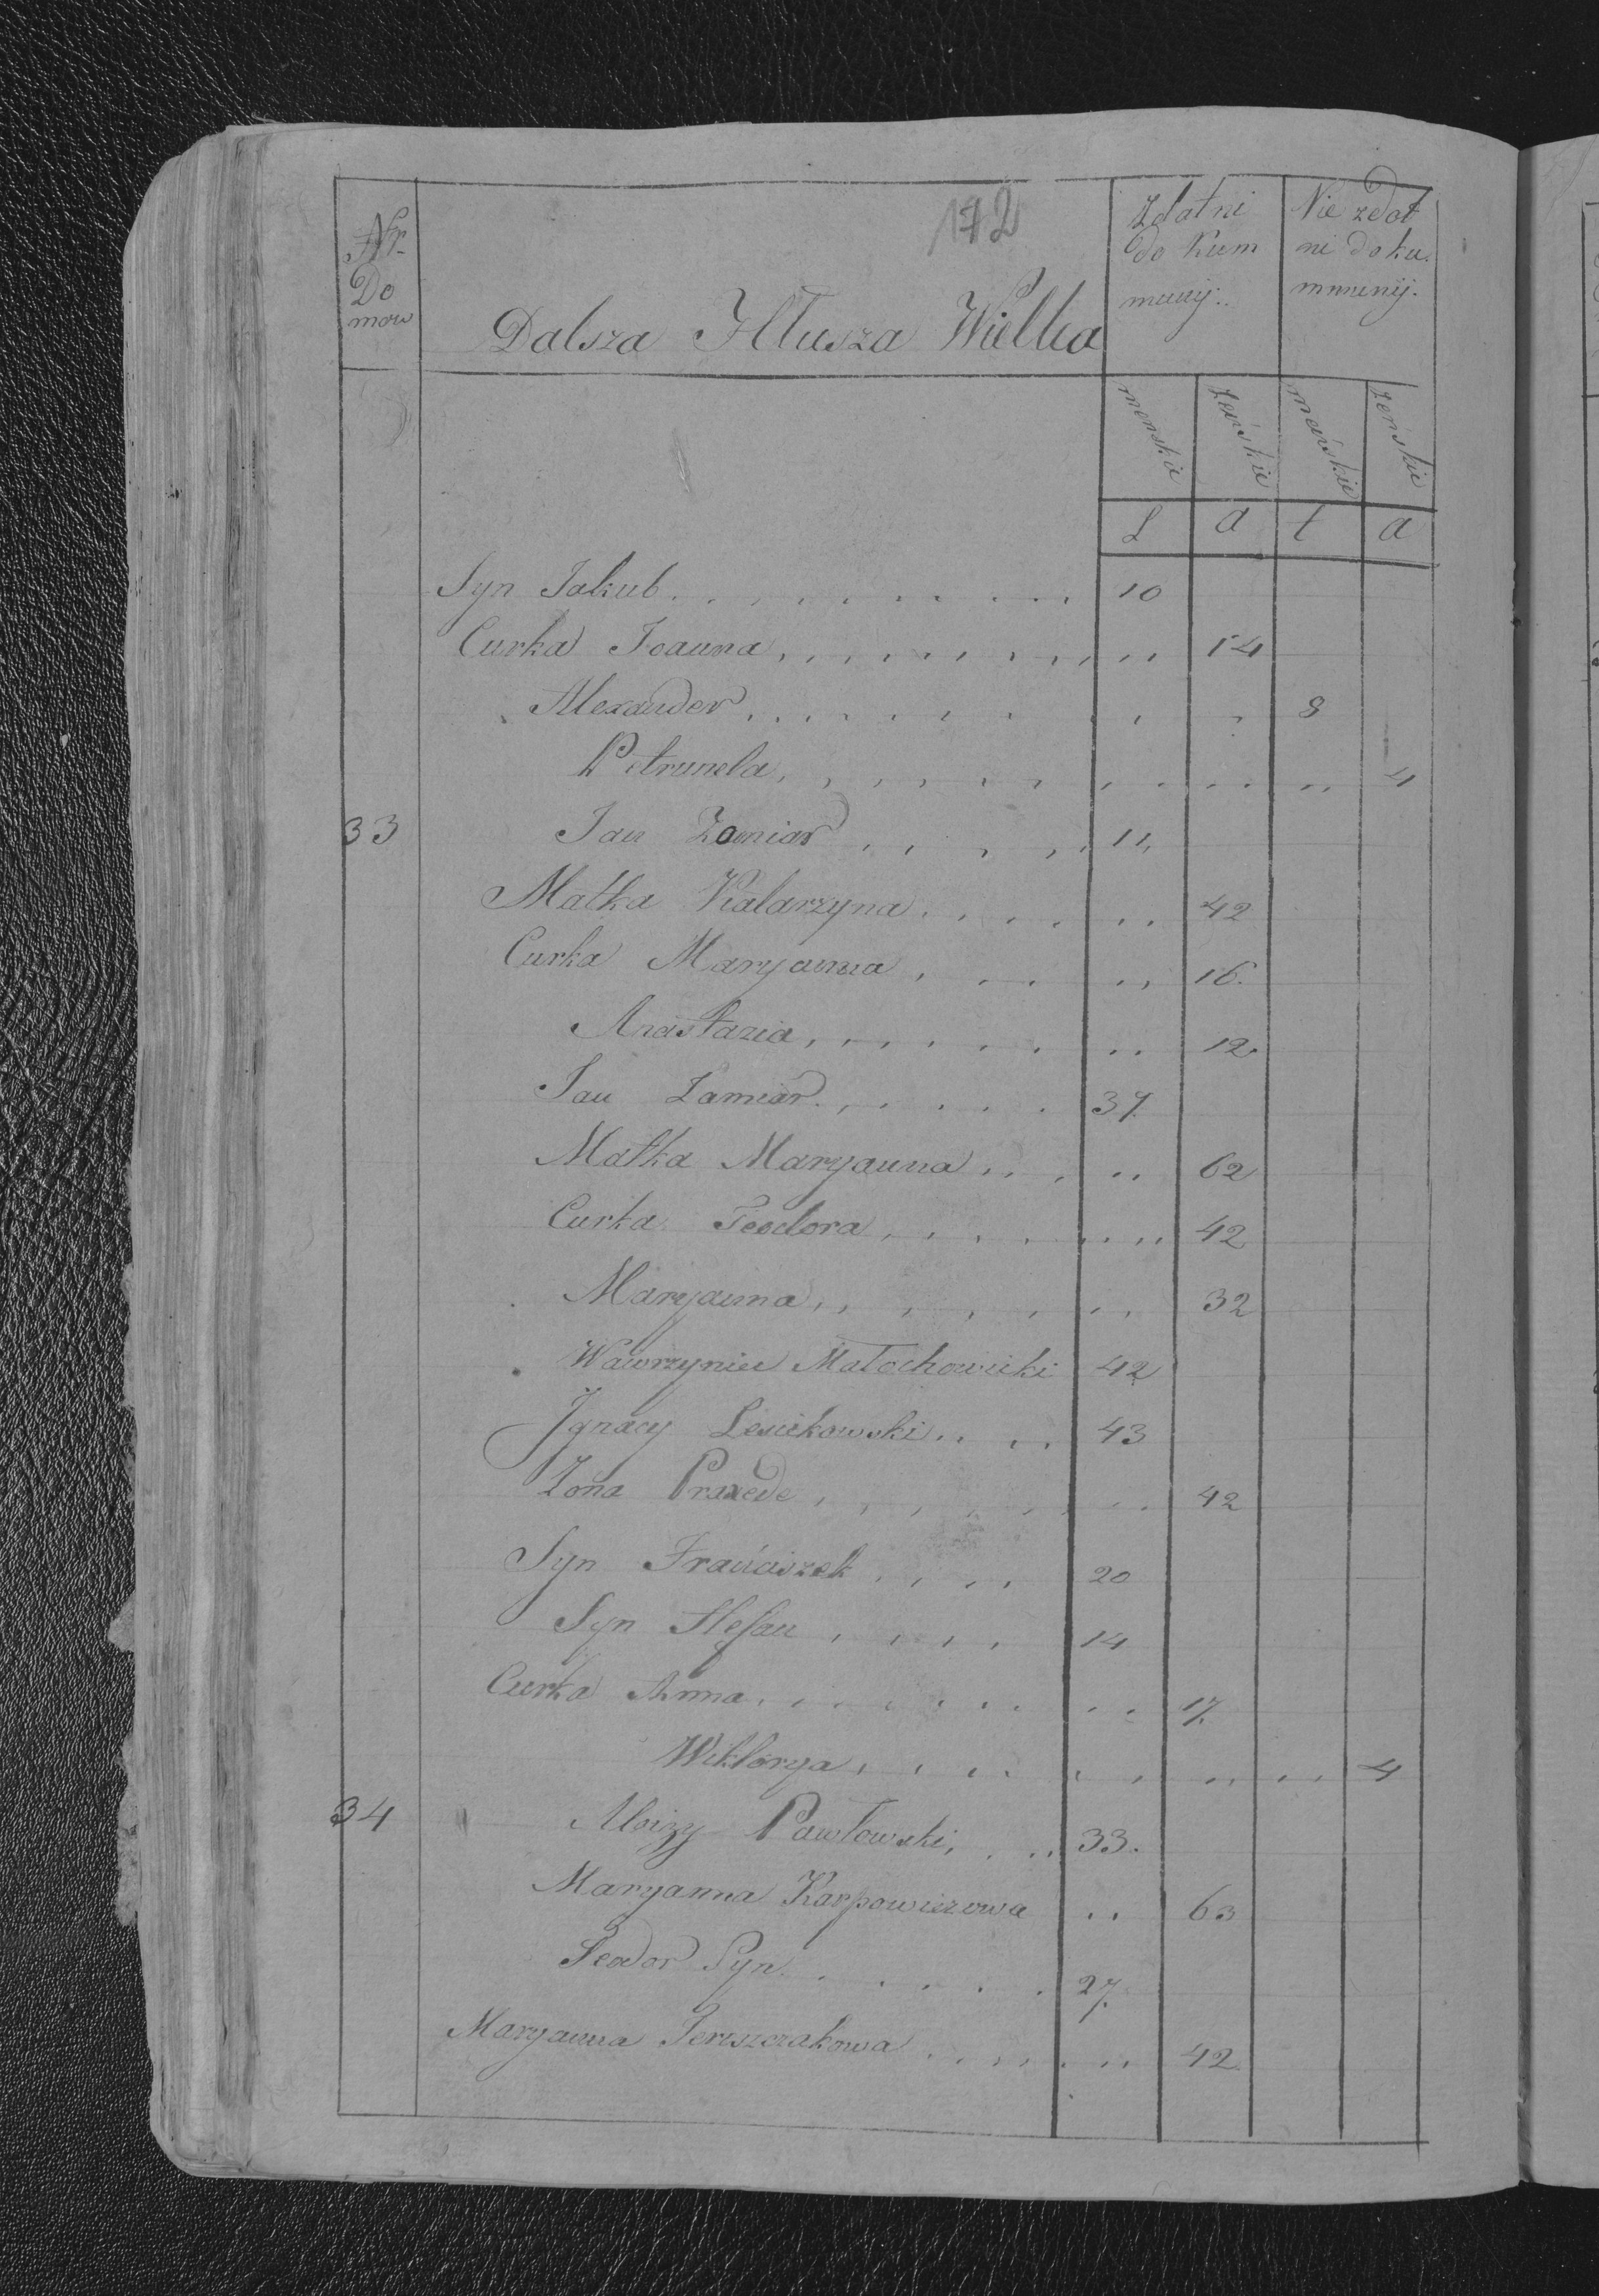 172
Nr. Do mow
Dalsza Hłusza Wielka
Zdatni do Kum munij:.
Nie zdat ni do ku. mmunij.
menskie żeńskie męńskie żeńskie
L a t a
Syn Jakub 10
Curka Joanna 14
Alexander 8
Petrunela 4
33 Jan Zamiar 11
Matka Katarzyna 42
Curka Maryanna 16.
Anastazia 12.
Jan Zamiar 37.
Matka Maryanna 62
Curka Teodora 42
Maryanna 32
Wawrzyniec Małochowicki 42
Ignacy 43
Zona Praxede 42
Syn Franciszek 20
Syn Stefan 14
Curka Anna 17.
Wiktorya 4
34 Aloizy Pawłowski 33.
Maryanna Karpowiczowa 63
Teodor Syn 27.
Maryanna 42